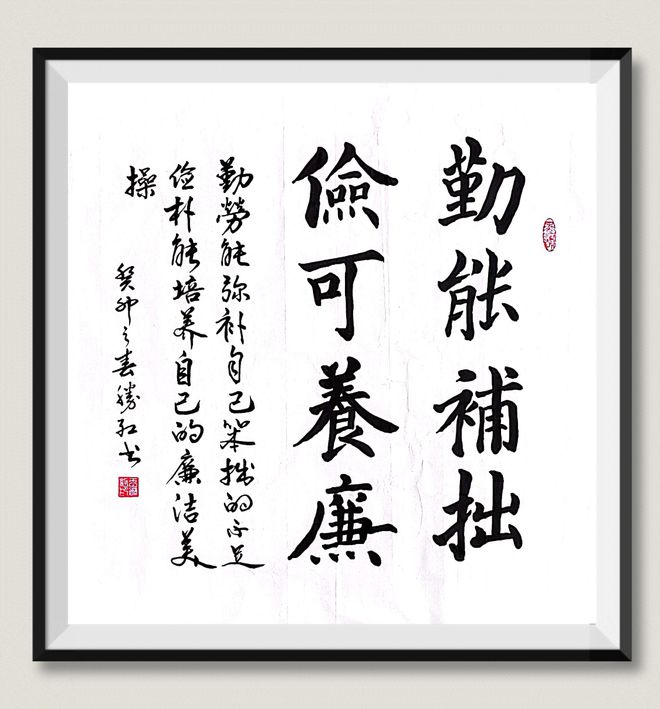 勤能補拙
儉可養廉
勤勞能弥补自己笨拙的不足
俭朴能培养自己的廉洁美
操
癸卯之春勝红书